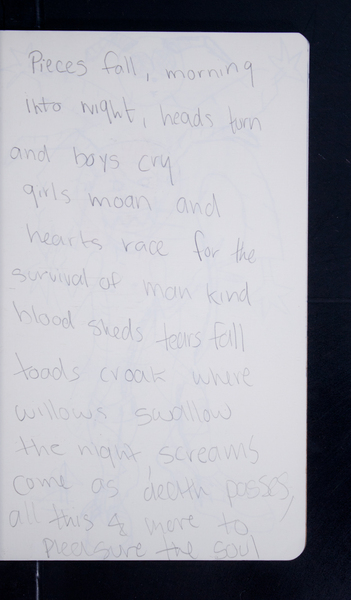 Pieces fall, morning
into night, heads turn
and boys cry
girls moan and
hearts race for the
survival of man kind
blood sheds tears fall
toads croak where
willows swallow
the night, screams
come as death passes,
all this & more to
pleasure the soul